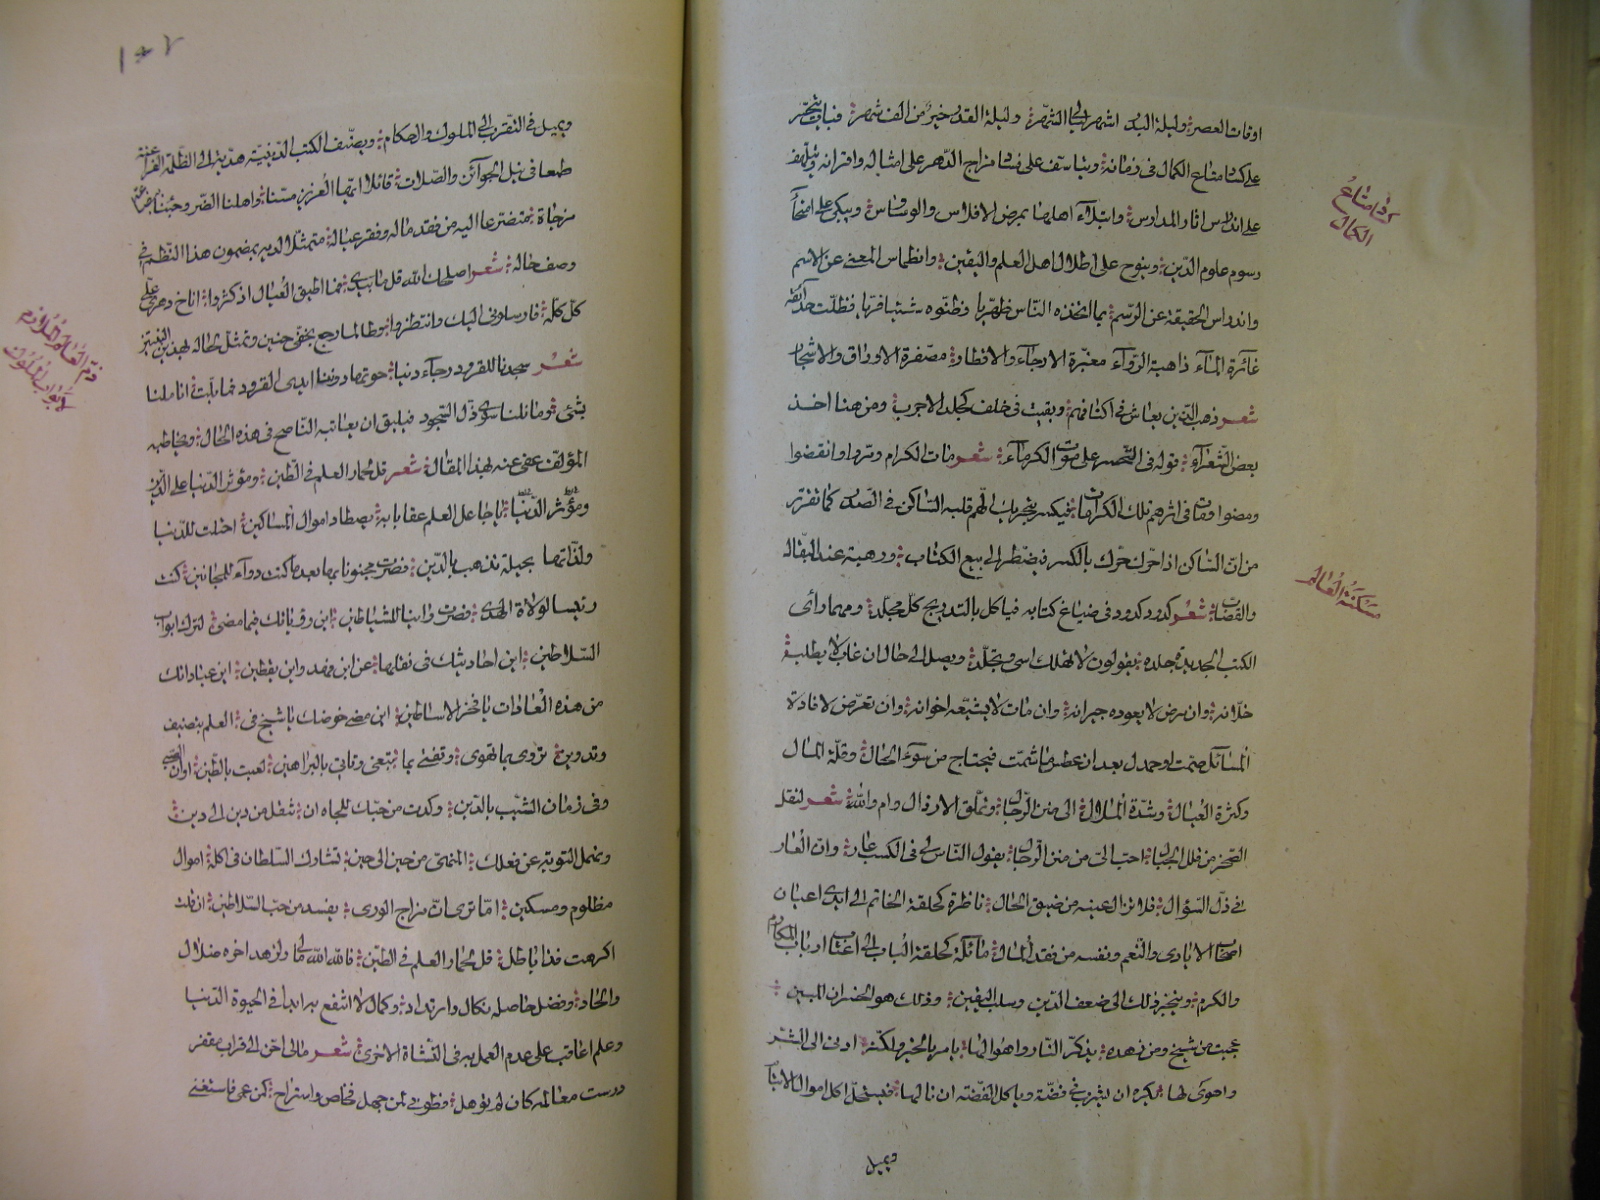 اوقات العصر وليلة البدر اشهر ليالى الشهر وليلة القدر خير من الف شهر
على كساد متاع الكمال فى زمانه ويتأسف على فساد مزاج الدهر على امثاله واقرانه
على اندراس اثار المدارس وابتلاء اهلها بمرض الافلاس والوسواس ويبكى على
رسوم علوم الدين وينوح على اطلال اهل العلم واليقين وانطماس المعنى عن الاسم
واندراس الحقيقة عن الرسم بما اتخذه الناس ظهريا وظنوه شيئا فريا فظلت حدائقه
غائرة الماء ذاهبة الرواء مغبرة الارجاء والاقطار مصفرة الاوراق والاشجار
شعر ذهب الذين يعاش فى اكنافهم وبقيت فى خلف كجلد الاجرب ومن هنا اخذ
بعض الشعراء قوله فى التحسر على موت الكرماء شعر مات الكرام ومروا وانقضوا
ومضوا ومات فى اثرهم تلك الكرامات فيكسر قلبه الساكن فى الصدر كما تقرر
من ان الساكن اذا حرك حرك بالكسر فيضطر الى بيع الكتاب ورهنه عند البقال
والقصاب شعر كدود كدود فى ضياع كتابه فياكل بالتدريج كل مجلد ومهما راى
الكتب الجديدة جلده يقولون لا تهلك اسى وتجلد ويصل الى حال ان غاب لا يطلبه
خلانه وان مرض لا يعوده جيرانه وان مات لا يشيعه اخوانه وان تعرض لافادة
المسائل صمت او حمدل بعد ان عطس ما شمت فيحتاج من سوء الحال وقلة المال
وكثرة العيال وشدة الملال الى منن الرجال وتملق الارذال وام والله شعر لنقل
الصخر من قلل الجبال احب الى من منن الرجال يقول الناس لى فى الكسب عار وان العار
فى ذل السؤال فلا تزال عينه من ضيق الحال ناظرة كحلقة الخاتم الى ايدى اعيان
اصحاب الايادى والنعم ونفسه من فقد المال ماثلة كحلقة الباب الى اعتاب ارباب المكارم
والكرم وينجر ذلك الى ضعف الدين وسلب اليقين وذلك هو الخسران المبين
عجبت من شيخ ومن زهده يذكر النار واهوالها يامر بالخير ولكنه ادنى الى الشر
واهوى لها يكره ان يشرب فى فضة وياكل الفضة ان نالها فيستحل اكل اموال
ويميل
كساد متاع
الكمال
مسكنة العالم
١٠٢
ويميل فى التقرب الى الملوك والحكام ويصنف الكتب الدينية هدية الى الظلمة
طمعا فى نيل الجوائز والصلات قائلا ايها العزيز مسنا واهلنا الضر وجئنا ببضاعة
مزجاة متضرعا اليه من فقد ماله وفقر عياله متمثلا لديه بمضمون هذا النظم فى
وصف حاله شعر اصلحك الله قل ما بيدى فما اطيق العيال اذ كثروا اناخ دهر على
كلكله فارسلونى اليك وانتظروا بخفى حنين
شعر سجدنا للقرود رجاء دنيا حوتها دوننا ايدى القرود فما بلت اناملنا
بشئ وما نلنا سوى ذل السجود فيليق ان يعاتبه الناصح فى هذه الحال ويخاطبه
المؤلف عفى عنه بهذا المقال شعر قل لحمار العلم فى الطين ومؤثر الدنيا على الدين
ومؤثر الدنيا يا جاعل العلم عقابا به يصطاد اموال المساكين احتلت للدنيا
ولذاتها بحيلة تذهب بالدين فصرت مجنونا بها بعدما كنت دواء للمجانين كنت
رئيسا لولاة الهدى فصرت اين رواياتك فيما مضى لترك ابواب
السلاطين اين احاديثك فى نقلها عن ابن وابن يقطين اين عباداتك
من هذه العادات يا فخر الاساطين اين مضى خوضك يا شيخ فى العلم بتصنيف
وتدوين تروى بما تهوى وتفتى بما تبتغى وتاتى بالبراهين لعبت بالطين اوان الصبى
وفى زمان الشيب بالدين وكدت من حبك للجاه ان تنقل من دين الى دين
وتهمل التوبة عن فعلك من حين الى حين تشارك السلطان فى اكله اموال
مظلوم ومسكين اما ترى ان مزاج الورى يفسد من حب السلاطين ان قلت
اكرهت فذا باطل قل لحمار العلم فى الطين فالله الله لجاه ولزهد اخره ضلال
والحاد وفضل حاصله نكال وارتداد وكمال لا انتفع به ابدا فى الحيوة الدنيا
وعلم اعاقب على عدم العمل به فى النشاة الاخرى شعر مالى احن الى
درست معالمه كان لم يوهل وطوبى لمن جهل واستراح كمن عمى فاستغنى
ذم العالم الملازم
لابواب الملوك